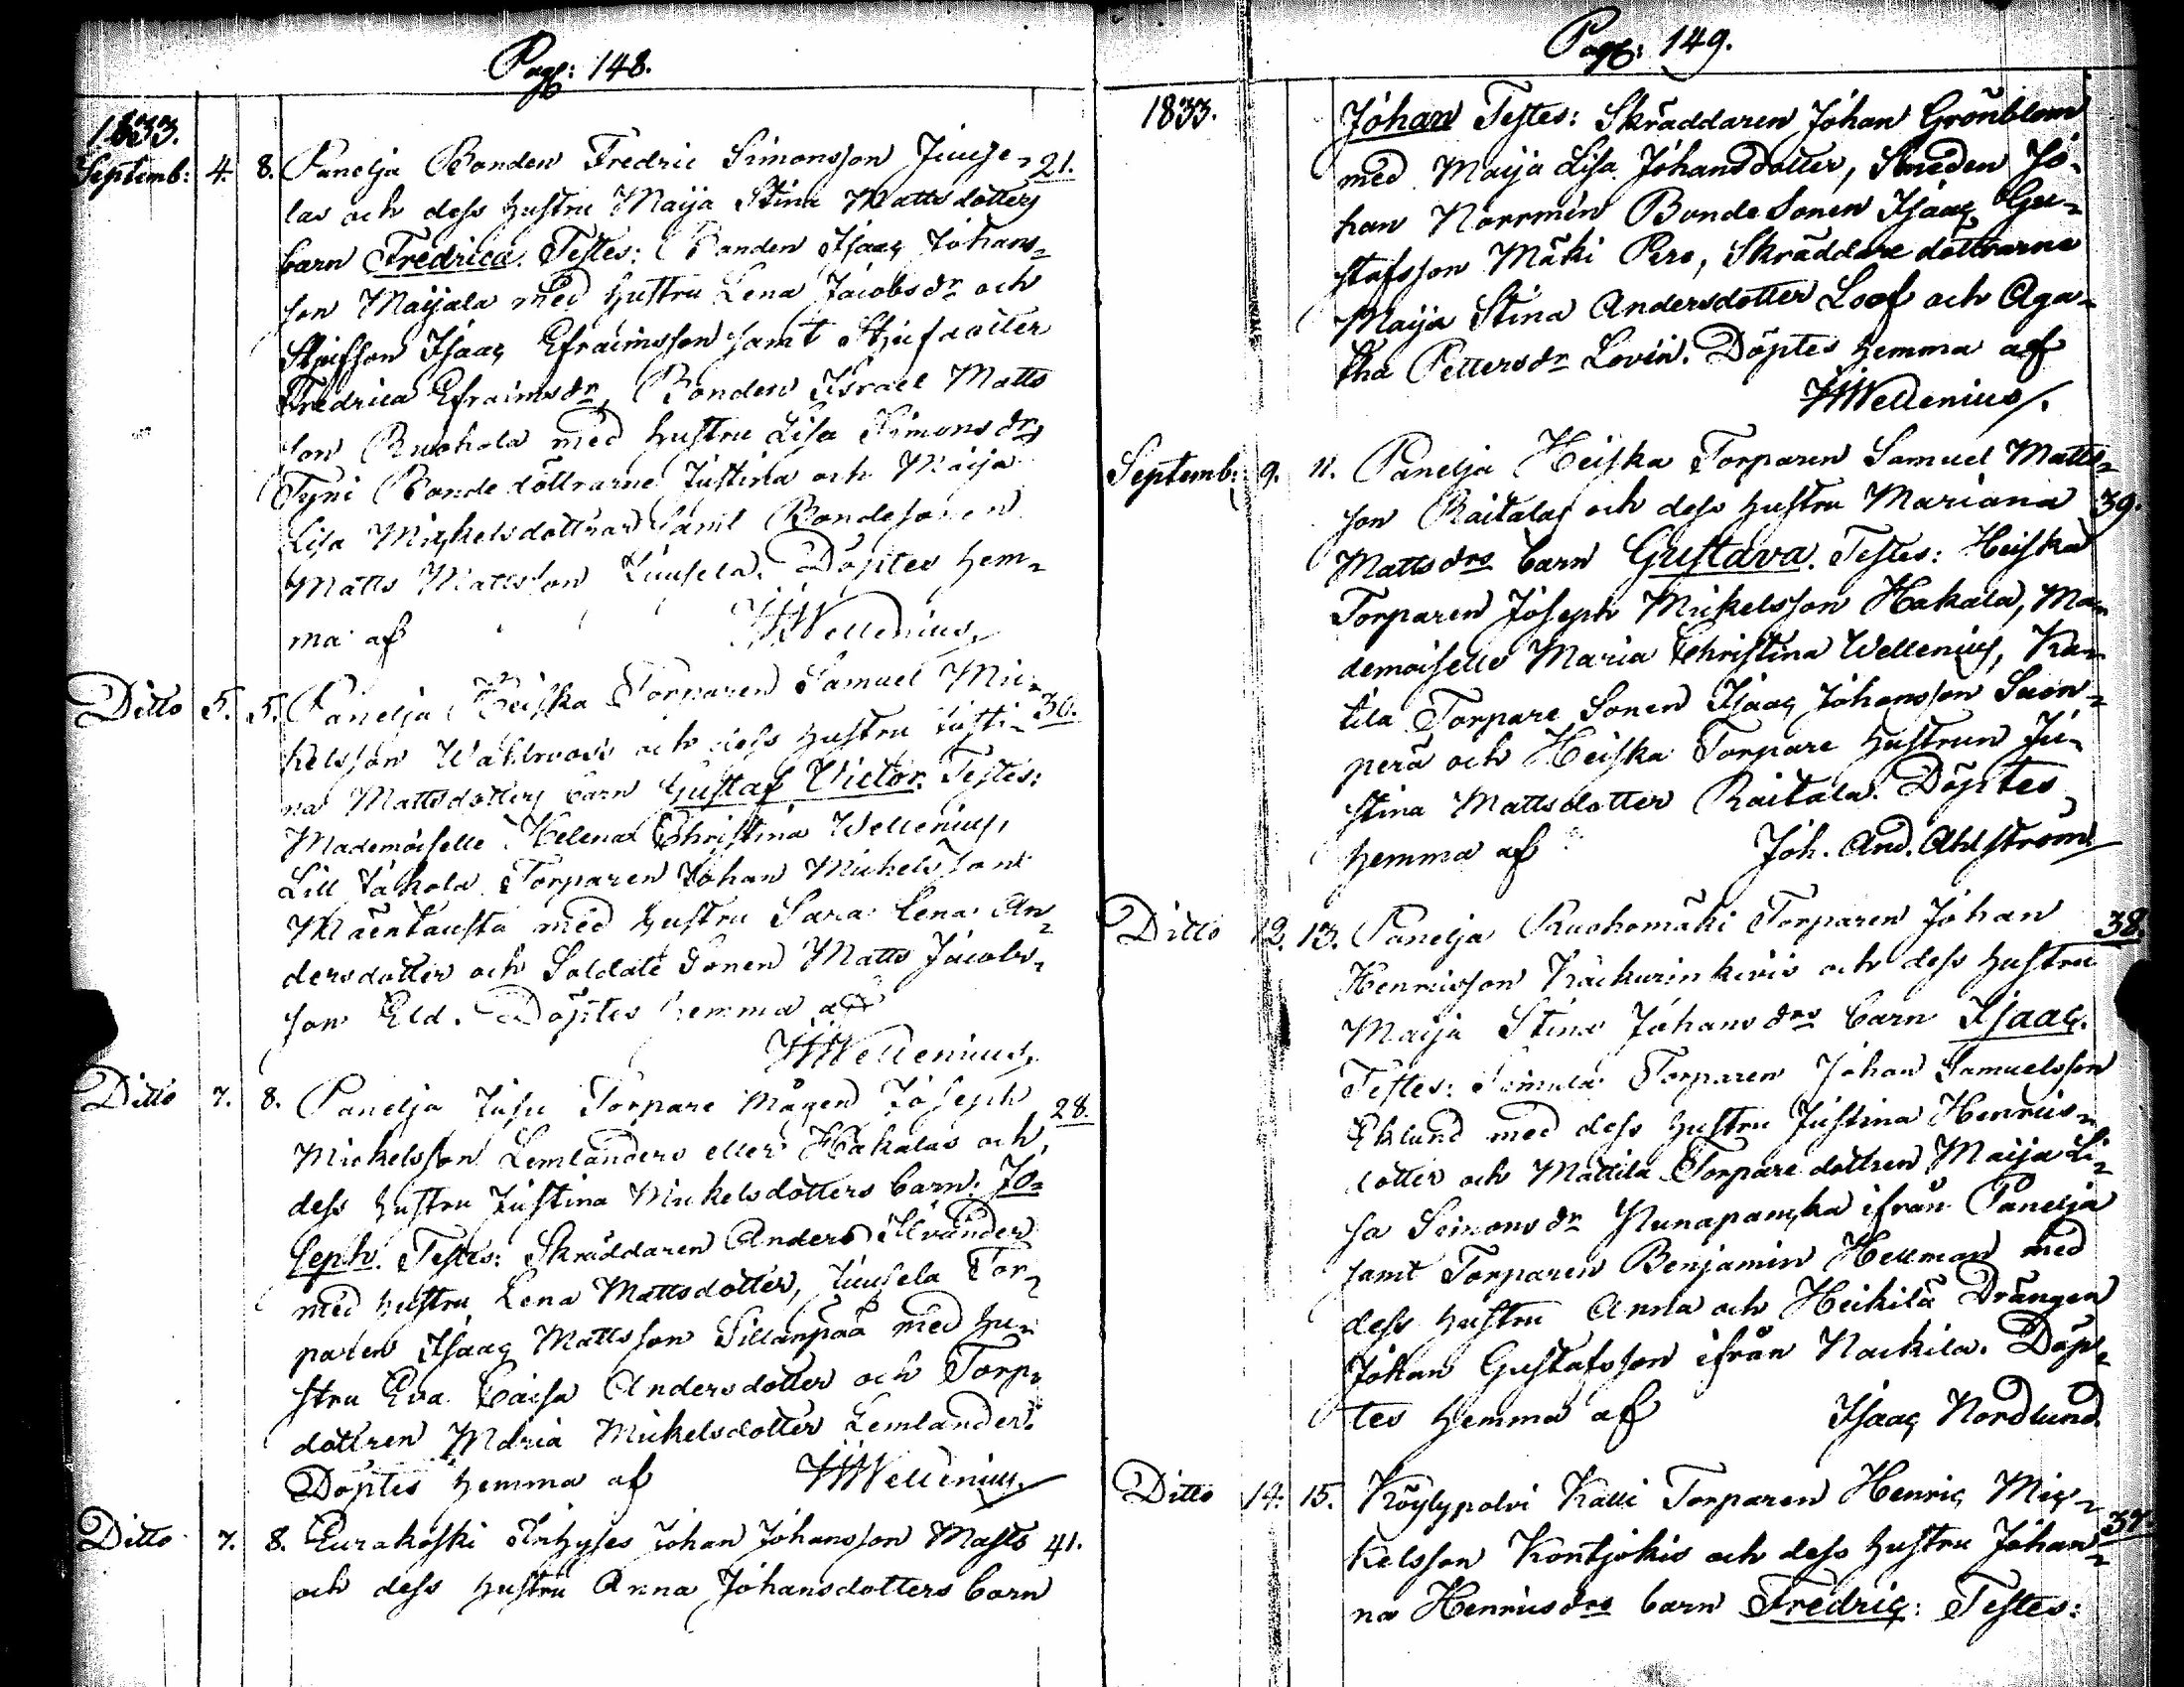 Pag: 148.
1833.
Septemb: 4. 8. Panelja Bonden Fredric Simonsson Juuse- 21.
las och dess hustru Maija Stina Mattsdotters
barn Fredrica. Testes: Bonden Isaac Johans-
son Maijala med hustru Lena Jacobsdr och
Stjufson Isaac Efraimsson samt Stjufdotter
Fredrica Efraimsdr, Bonden Israel Matts
son Ruohola med hustru Lisa Simonsdr,
Tyni Bondedöttrarne Justina och Maija
Lisa Mickelsdöttrar samt Bondesonen
Matts Mattsson Juusela. Döptes hem-
ma af Wellenius
Ditto 5. 5. Panelja Heiska Torparen Samuel Mic- 30.
kelsson Wahlroos och dess hustru Justi-
na Mattsdotters barn Gustaf Victor. Testes:
Mademoiselle Helena Christina Wellenius,
Lill Jakola Torparen Johan Mickelsson
Mäentausta med hustru Sara Lena An-
dersdotter och Soldate Sonen Matts Jacobs-
son Eld. Döptes hemma af
Wellenius
Ditto 7. 8. Panelja Torpare mågen Joseph 28.
Mickelsson Lemlanders eller Hakalas och
dess hustru Justina Mickelsdotters barn Jo-
seph. Testes: Skräddaren Anders
med hustru Lena Mattsdotter, Juusela Tor-
paren Isaac Mattsson Sillanpää med hu-
stru Eva Caisa Andersdotter och Torp-
dottren Maria Mickelsdotter Lemlander.
Döptes hemma af Wellenius
Ditto 7. 8. Eurakoski Inhyses Johan Johansson Masts 41.
och dess hustru Anna Johansdotters barn
Pag: 149.
1833.
Johan Testes: Skräddaren Johan Grönblom
med Maija Lisa Johansdotter, Smeden Jo-
han Norrmén Bonde Sonen Isaac Gu-
stafsson Mäki Pere, Skräddare döttrarne
Maija Stina Andersdotter Loof och Aga-
tha Pettersdr Lovin. Döptes hemma af
Wellenius
Septemb: 9. 11. Panelja Heiska Torparen Samuel Matts-
son Raitalas och dess hustru Mariana 39.
Mattsdrs barn Gustava. Testes: Heiska
Torparen Joseph Mickelsson Hakala, Ma-
demoiselle Maria Christina Wellenius, Kan-
tila Torpare Sonen Isaac Johansson Suon-
perä och Heiska Torpare hustrun Ju-
stina Mattsdotter Raitala. Döptes
hemma af Joh. And. Ahlström
Ditto 12. 13. Panelja Ruohomäki Torparen Johan 38.
Henricsson Käckurinkivis och dess hustru
Maija Stina Johansdrs barn Isaac.
Testes: Torparen Johan Samuelsson
Eklund med dess hustru Justina Henrics-
dotter och Mattila Torpare dottren Maija Li-
sa Simonsdr ifrån Panelja
samt Torparen Benjamin Hellman med
dess hustru Anna och Heikilä Drängen
Johan Gustafsson ifrån Nackila. Döp-
tes hemma af Isaac Nordlund
Ditto 14. 15. Köylypolvi Kalli Torparen Henric Mic- 37
kelsson Kontjokis och dess hustru Johan-
na Henricsdrs barn Fredric: Testes: